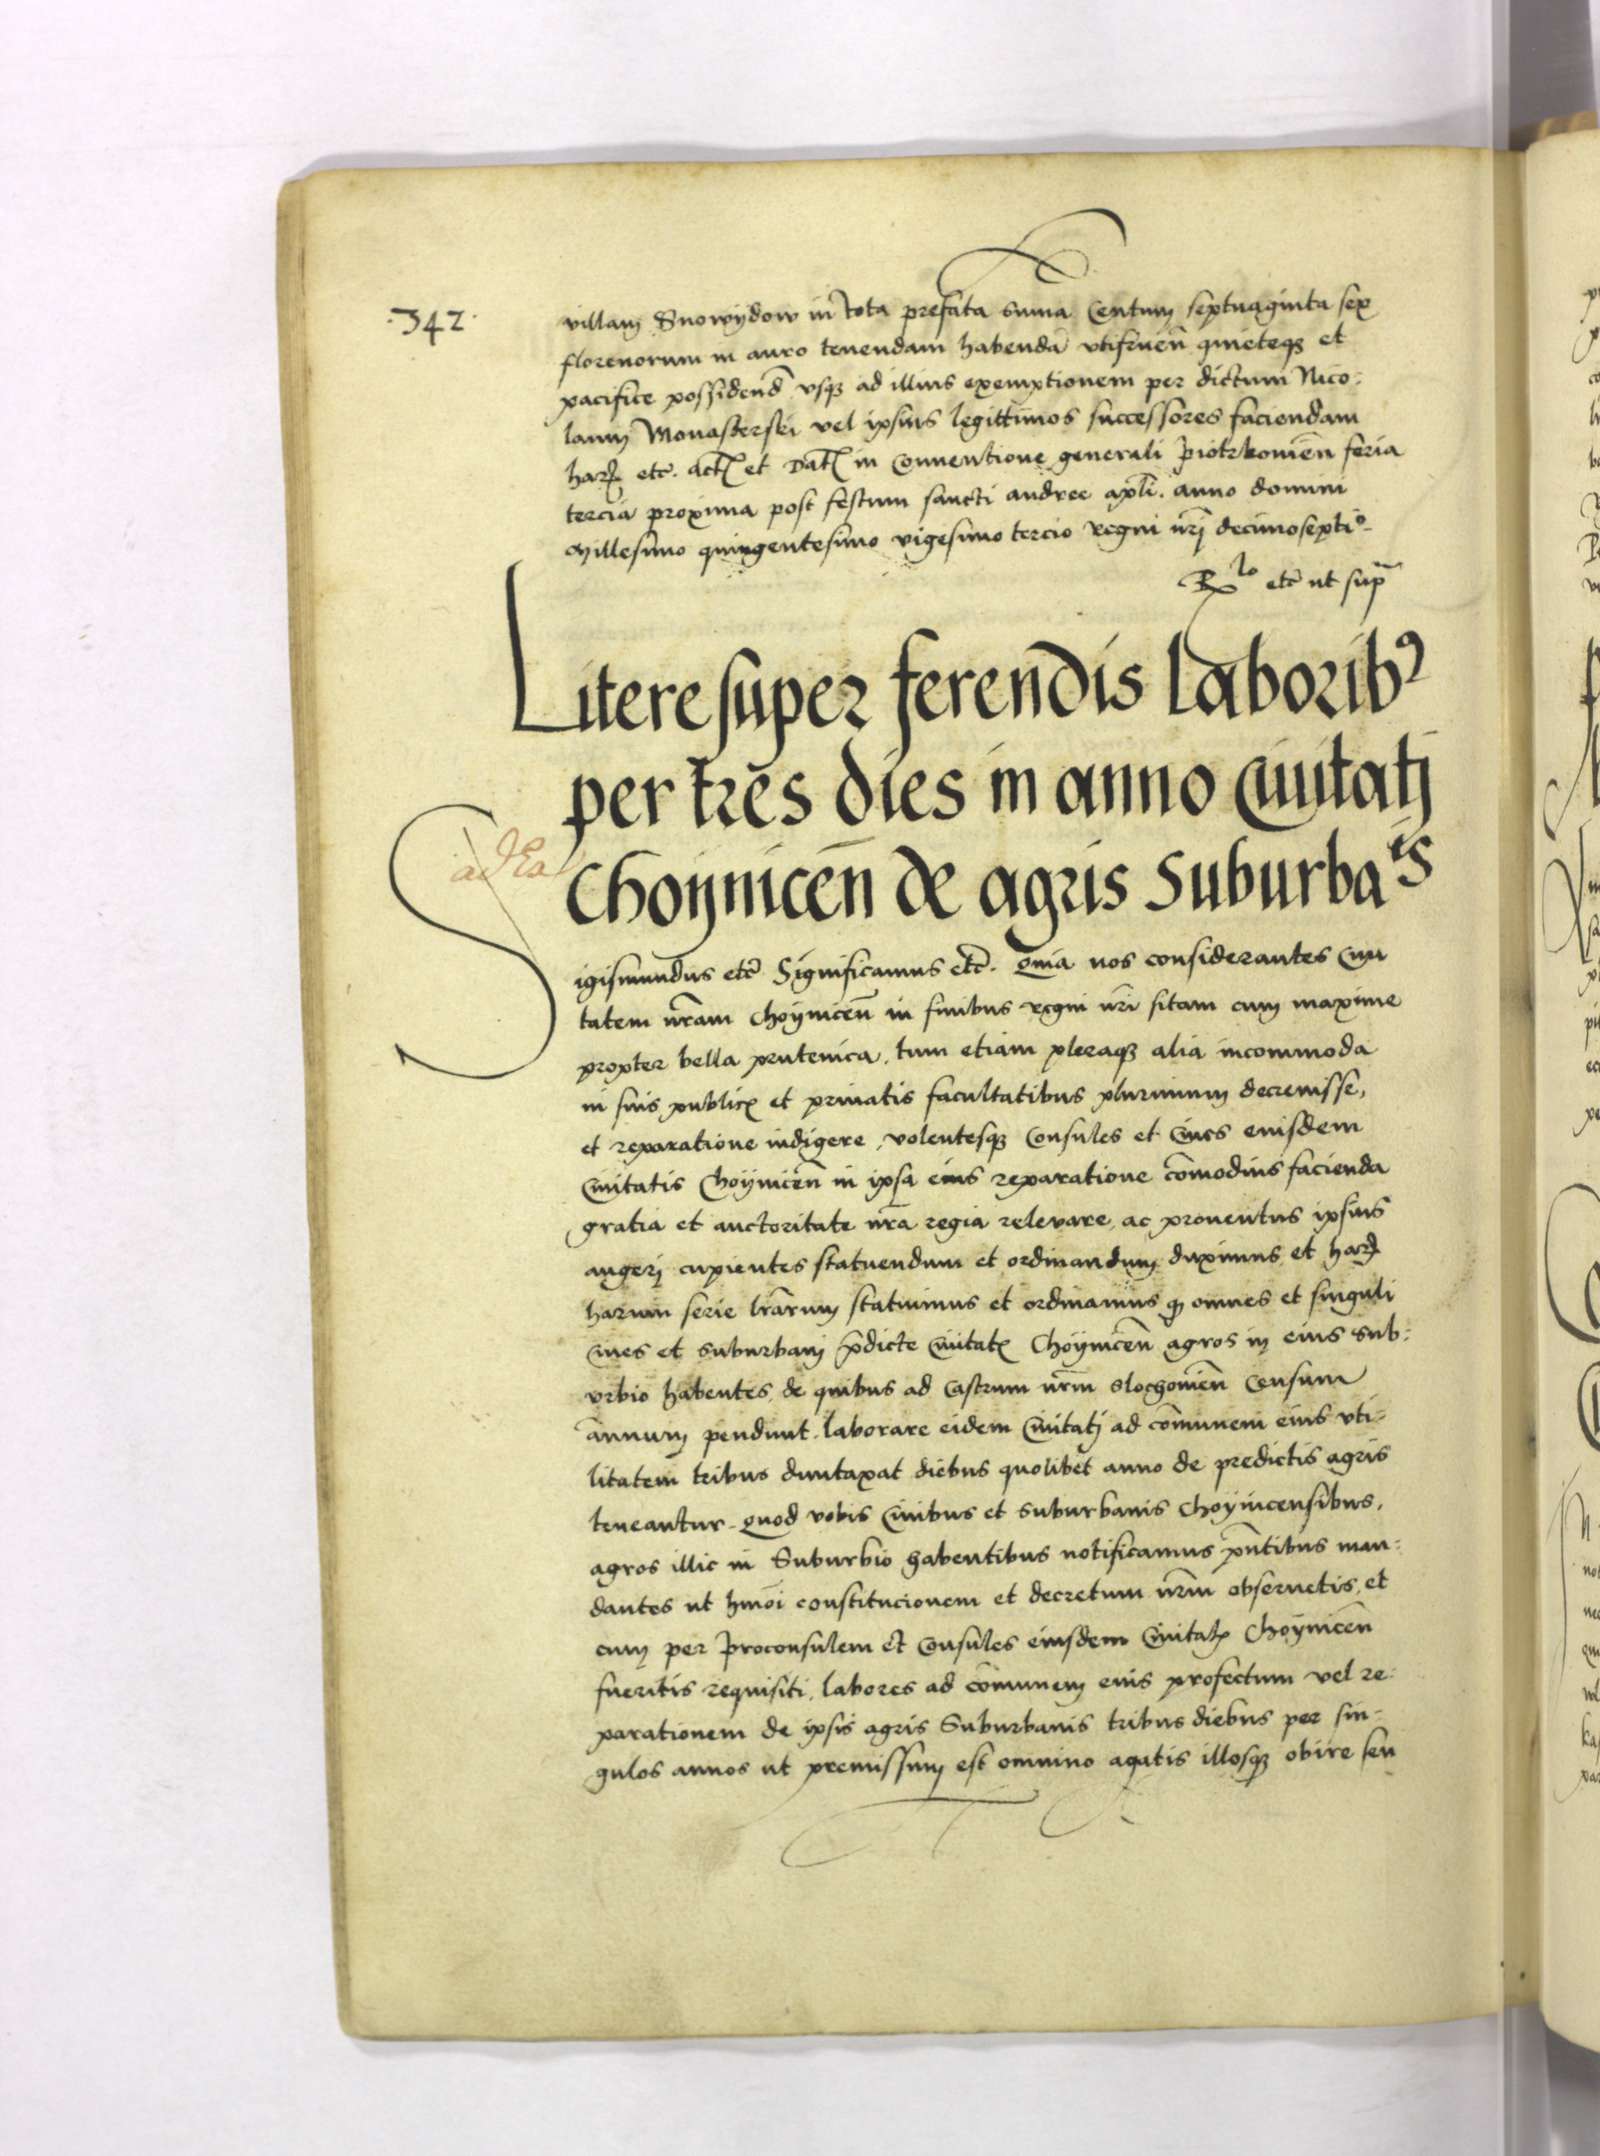 ·342·
villam Snowydow in tota prefata suma Centum septuaginta sex
florenorum in auro tenendam habendā utifruēn quieteqz et
pacifice possidend usqz ad illius exemptionem per dictum Nico:
laum Monasterski vel ipsius legittimos successores faciendam
har etc̄. Act et Dat in Conventione generali Piotrkoviēn feria
tercia proxima post festum sancti andree apl̄i. anno domini
Millesimo quingentesimo vigesimo tercio Regni nr̄j decimoseptiº.
Rlo etc̄ ut sup̄
Litere super ferendis laborib9
per tres dies in anno Civitatj
Choynicēn de agris Suburbais
ad Ea
Sigismundus etc̄ Significamus etc̄. Quia nos considerantes Civi
tatem nr̄am Choynicēn in finibus regni nr̄i sitam cum maxime
propter bella prutenica, tum etiam pleraqz alia incommoda
in suis public et privatis facultatibus plurimum decrevisse,
et reparatione indigere, volentesqz Consules et Cives eiusdem
Civitatis Choynicēn in ipsa eius reparatione cōmodius facienda
gratia et auctoritate nr̄a regia relevare, ac proventus ipsius
augerj cupientes statuendum et ordinandum duximus et har
harum serie lr̄arum statuimus et ordinamus q omnes et singuli
Cives et suburbanj p̄dicte Civitat Choynicēn agros in eius sub:
urbio habentes, de quibus ad Castrum nr̄m Slochoviēn Censum
annuum pendunt, laborare eidem Civitatj ad cōmunem eius uti=
litatem tribus duntaxat diebus quolibet anno de predictis agris
teneantur. Quod vobis Civibus et suburbanis Choynicensibus,
agros illic in Suburbio habentibus notificamus p̄ntibus man:
dantes ut hmōi constitucionem et decretum nr̄m observetis, et
cum per Proconsulem et Consules eiusdem Civitat Choynicēn
fueritis requisiti, labores ad cōmunem eius profectum vel re:
parationem de ipsis agris Suburbanis tribus diebus per sin=
gulos annos ut premissum est omnino agatis illosqz obire seu